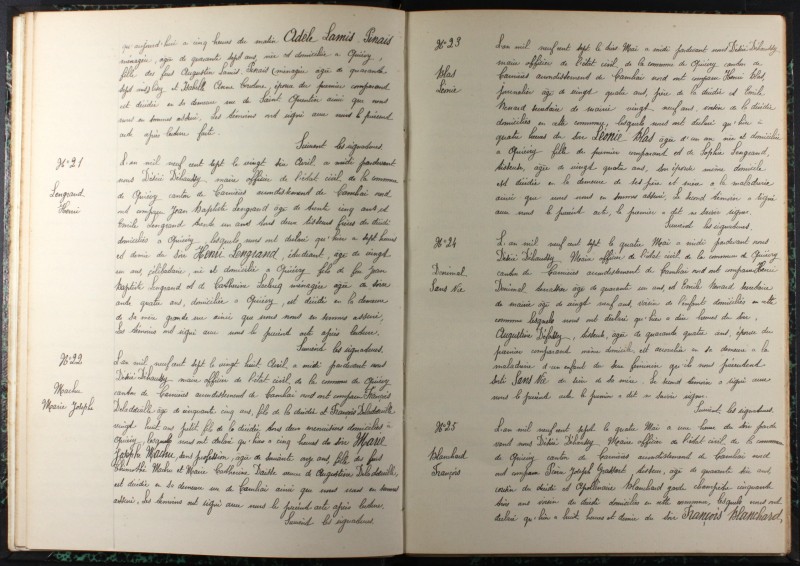 qu'aujourd'hui à cinq heures du matin Adèle Lamis Senais
ménagère, âgée de quarante sept ans, née et domiciliée à Quiévy,
fille des feus Augustin Lamis
sept et
est décédée en sa demeure rue de Saint Quentin ainsi que nous
nous en sommes assuré, Les témoins ont signé avec nous le présent
acte après lecture faite
Suivent les signatures.
N° 21
Lengrand
Henri
L'an mil neuf cent sept le vingt six Avril à midi pardevant
nous Désiré Délaussy maire officier de l'état civil de la commune
de Quiévy canton de Carnières arrondissement de Cambrai nord
ont comparu Jean Baptiste Lengrand âgé de trente cinq ans et
Emile Lengrand trente un ans tous deux tisseurs frères du décédé
domiciliés à Quiévy, lesquels nous ont déclaré qu'hier à sept heures
et demie du soir Henri Lengrand, étudiant, âgé de vingt
un ans, célibataire, né et domicilié à Quiévy fils de feu Jean
Baptiste Lengrand et de Catherine Leclercq ménagère âgée de soixante
quatre ans, domiciliée à Quiévy, est décédé en la demeure
de sa mère grande rue ainsi que nous nous en sommes assuré,
Les témoins ont signé avec nous le présent acte après lecture.
Suivent les signatures.
N° 22
Machu
Marie Josephe
L'an mil neuf cent sept le vingt huit Avril à midi pardevant nous
Désiré Délaussy maire officier de l'état civil de la commune de Quiévy
canton de Carnières arrondissement de Cambrai nord ont comparu François
âgé de cinquante cinq ans, fils de la décédée et François
vingt huit ans petit fils de la décédée, tous deux domiciliés à
Quiévy, lesquels nous ont déclaré qu'hier à cinq heures du soir Marie
Josephe Machu sans profession, âgée de ans, fille des feus
Machu et Marie Catherine veuve de Augustin
est décédée en sa demeure rue de Cambrai ainsi que nous nous en sommes
assuré, Les témoins ont signé avec nous le présent acte après lecture.
Suivent les signatures.
N° 23
Blas
Léonie
L'an mil neuf cent sept le trois Mai à midi pardevant nous Désiré Délaussy
maire officier de l'état civil de la commune de Quiévy canton de
Carnières arrondissement de Cambrai nord ont comparu Henri Blas,
journalier âgé de vingt quatre ans, père de la décédée et Emile
Venard secrétaire de mairie vingt neuf ans, voisin de la décédée
domiciliés en cette commune, lesquels nous ont déclaré qu'hier à
quatre heures du soir Léonie Blas âgée d'un an née et domiciliée
à Quiévy fille du premier comparant et de Sophie Lengrand,
tisseuse, âgée de vingt quatre ans, son épouse même domicile
est décédée en la demeure de ses père et mère à la maladrerie
ainsi que nous nous en sommes assuré. Le second témoin a signé
avec nous le présent acte, le premier a dit ne savoir signer.
Suivent les signatures.
N° 24
Dominal
Sans Vie
L'an mil neuf cent sept le quatre Mai à midi pardevant nous
Désiré Délaussy, Maire officier de l'état civil de la commune de Quiévy
canton de Carnières arrondissement de Cambrai nord ont comparu Henri
Dominal, âgé de quarante un ans, et Emile Venard secrétaire
de mairie âgé de vingt neuf ans, voisin de l'enfant domiciliés en cette
commune lesquels nous ont déclaré qu'hier à dix heures du soir,
Augustine tisseuse, âgée de quarante quatre ans, épouse du
premier comparant même domicile, est accouchée en sa demeure à la
maladrerie d'un enfant du sexe féminin qu'ils nous présentent
sorti Sans Vie du sein de sa mère. Le second témoin a signé avec
nous le présent acte le premier a dit ne savoir signer.
Suivent les signatures.
N° 25
Blanchard
François
L'an mil neuf cent sept le quatre Mai à une heure du soir pardevant
nous Désiré Délaussy, Maire officier de l'état civil de la commune
de Quiévy canton de Carnières arrondissement de Cambrai nord
ont comparu Pierre Joseph tisseur, âgé de quarante six ans,
cousin du décédé et Apollinaire Blanchard garde champêtre cinquante
trois ans voisin du décédé domiciliés en cette commune, lesquels nous ont
déclaré qu'hier à huit heures et demie du soir François Blanchard,